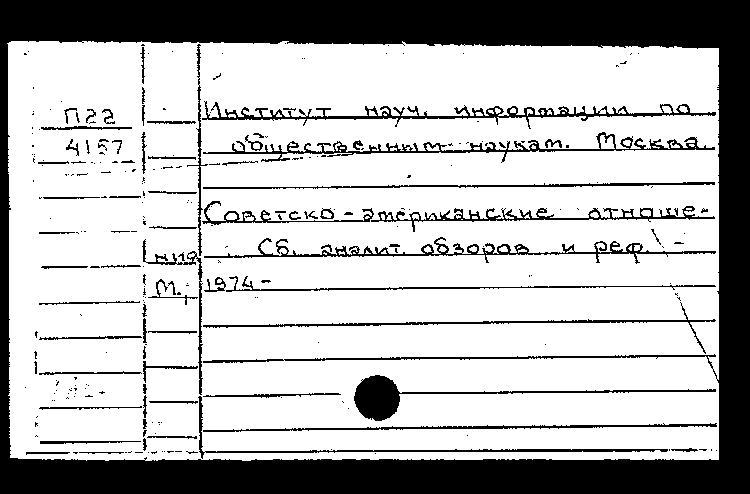 П22 Институт науч. информации по
4157 общественным наукам. Москва.
Советско-американские отноше-
ния. Сб. аналит. обзоров и реф. -
М., 1974 -